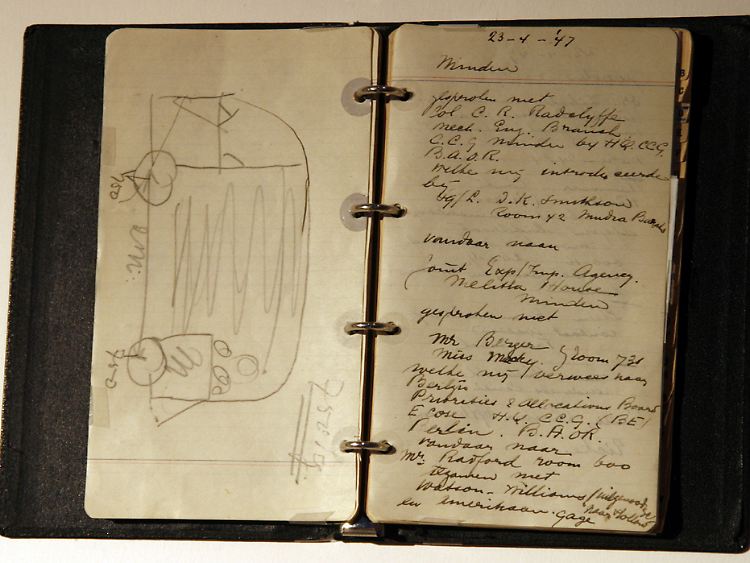 750
750
23-4-'47
Minden
gesproken met
Col. C. R. Radclyffe
Mech. Eng. Branch
C.C.G. Minden by H.Q. CCG.
B.A.O.R.
welke mij introduceerde
bij
J.K. Smithson
Room 42 Mudra
vandaar naar
joint Exp/Imp. Agency.
Melitta House
Minden
gesproken met
Mr Berger
Miss room 731
welke mij verwees naar
Berlijn
Priorities & Allocations Board
H.Q. C.C.G. (BE)
Berlin. B.A.O.R.
vandaar naar
Mr. Radford room 600
tezamen met
Watson - Williams
en Amerikaan. Gage